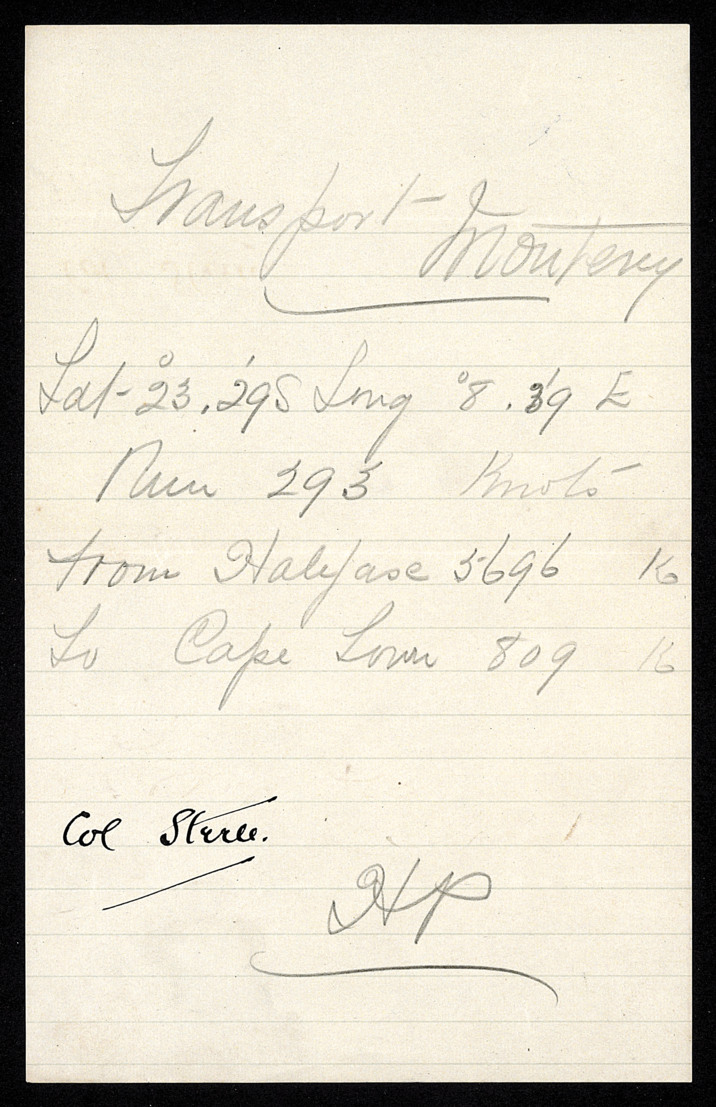 Transport
Monterey
Lat 23°.29'S Long 8°.39' E
Run 293 Knots
from Halifase 5696 K
To Cape Town 809 K
Col Steele.
HP